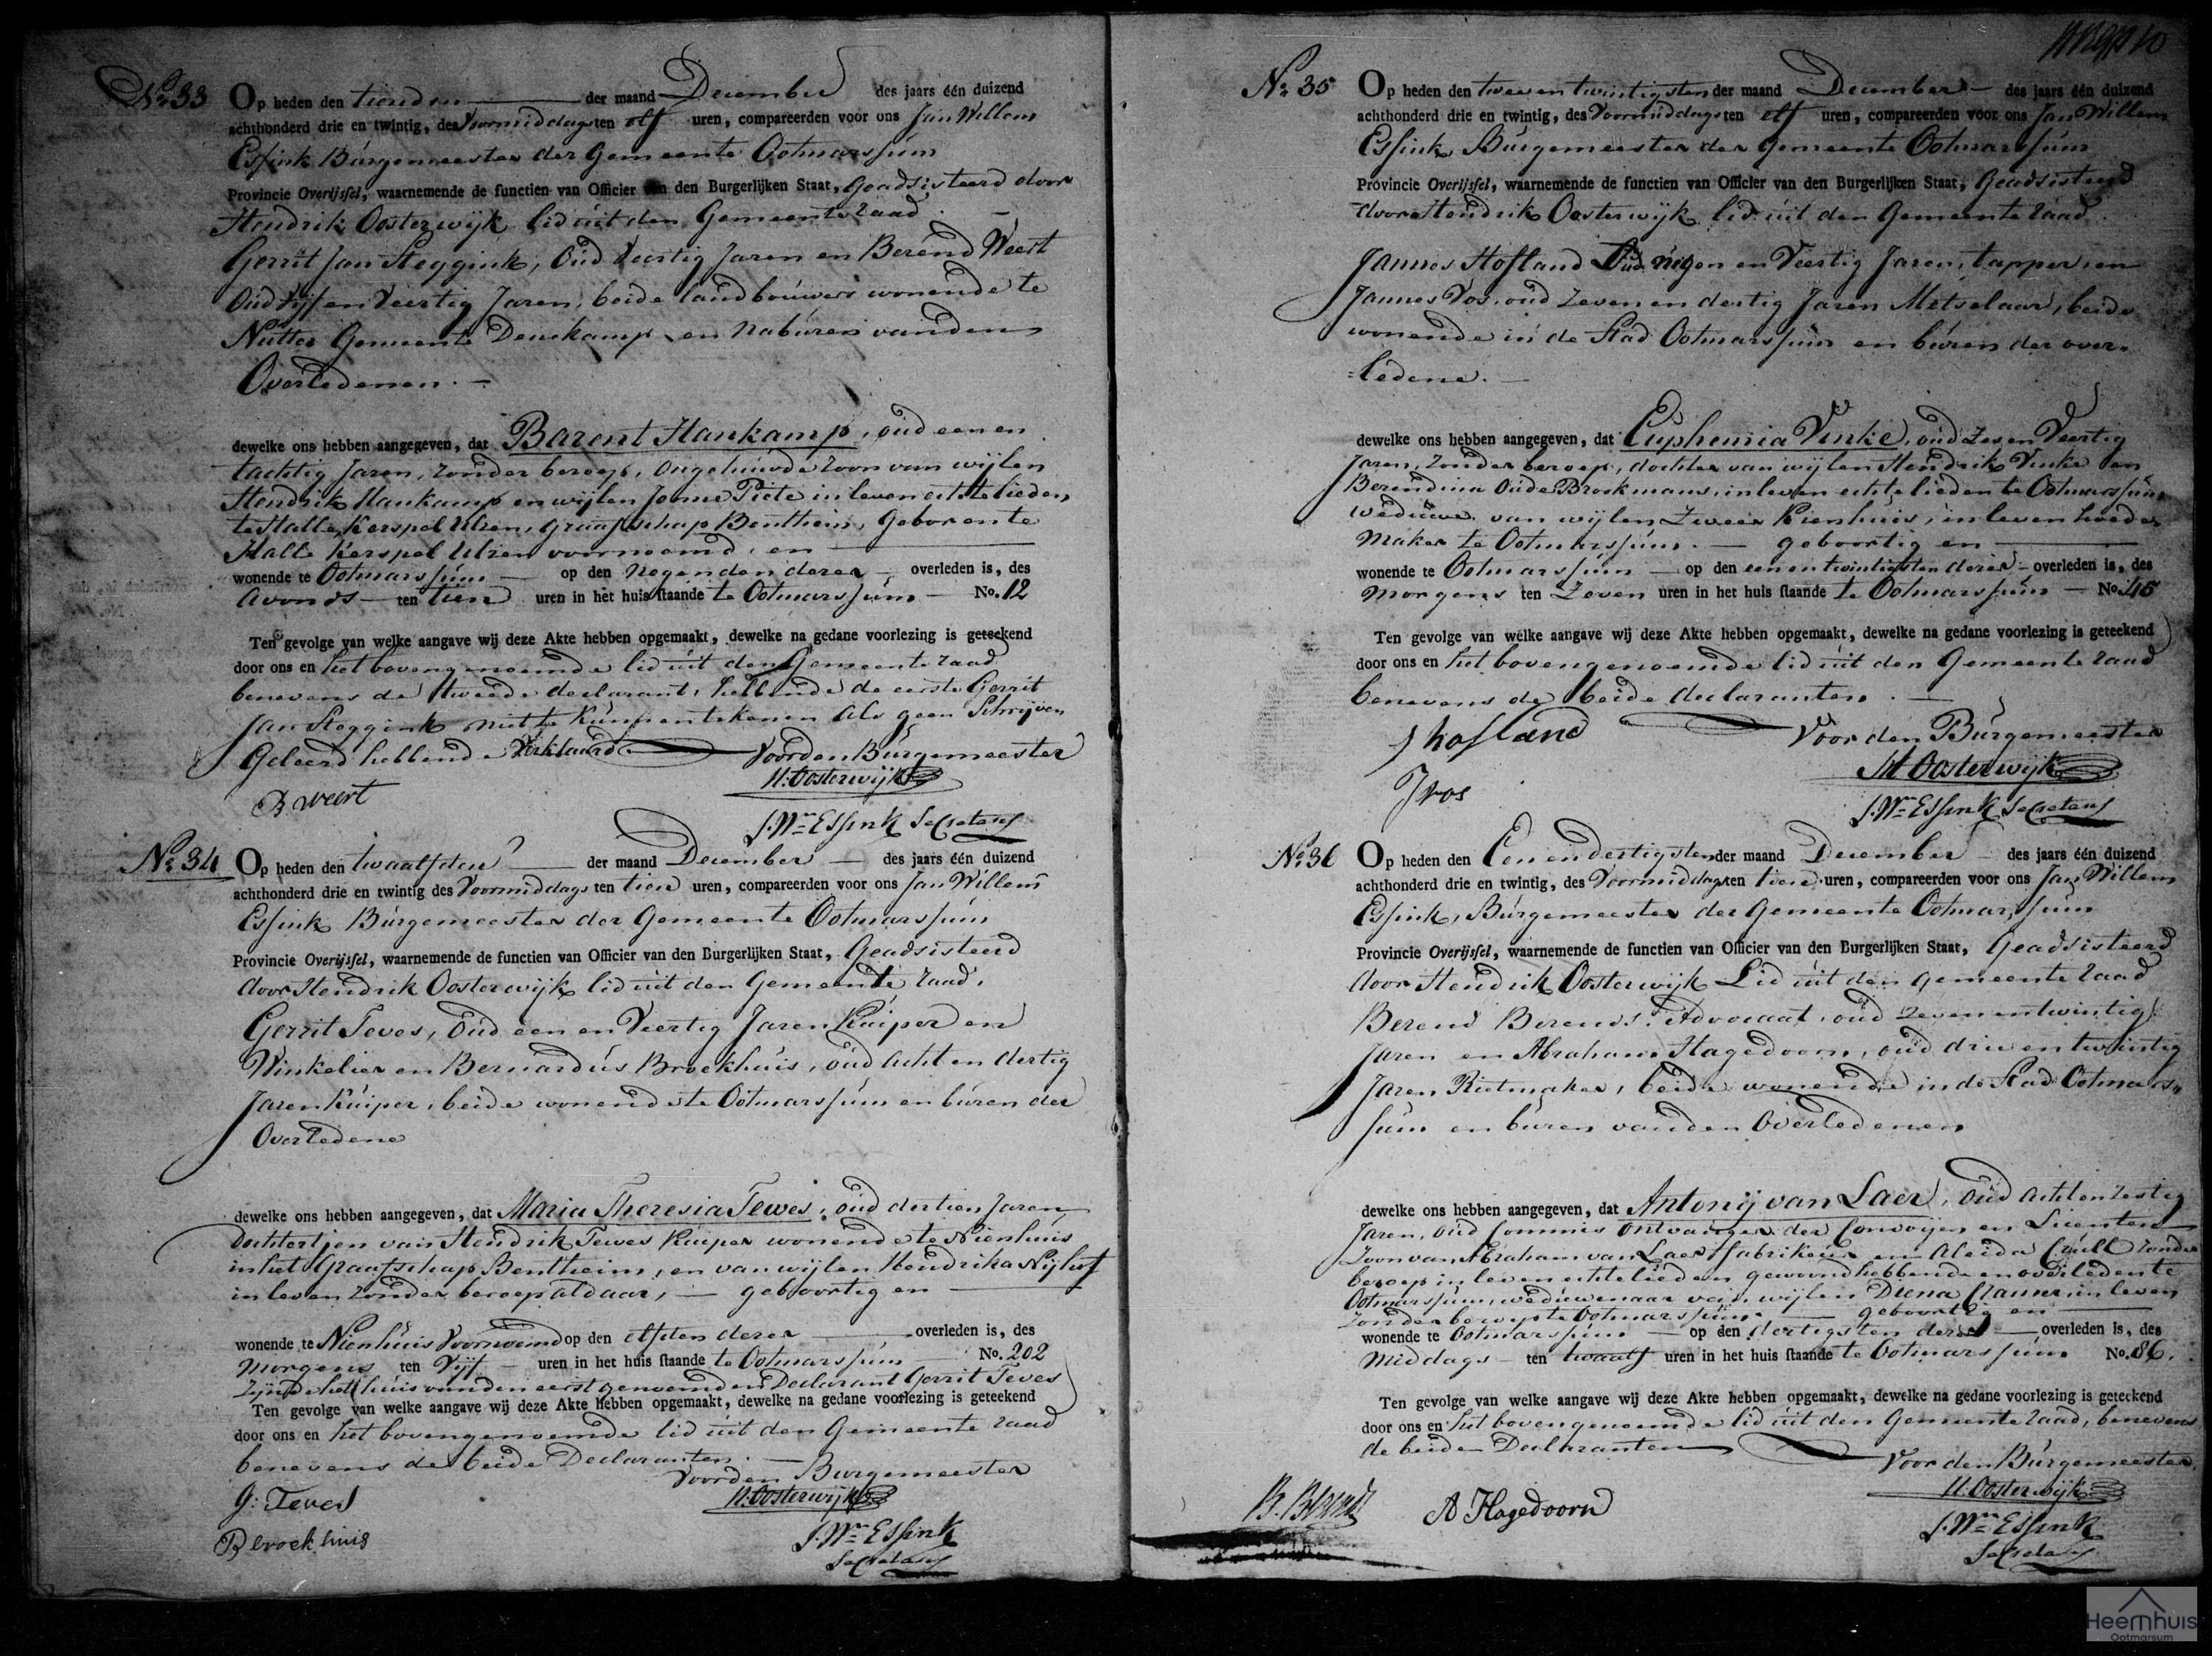 No. 33 Op heden den tienden der maand December des jaars één duizend
achthonderd drie en twintig, des Voormiddags ten elf uren, compareerden voor ons Jan Willem
Essink Burgemeester der Gemeente Ootmarssum
Provincie Overijssel, waarnemende de functien van Officier van den Burgerlijken Staat, Geadsisteerd door
Hendrik Oosterwijk lid uit den Gemeente raad
Gerrit Jan Steggink, Oud Veertig Jaren en Berend Weert
Oud vijf en Veertig Jaren, beide landbouwers wonende te
Nutter Gemeente Denekamp en naburen van den
Overledenen.
dewelke ons hebben aangegeven, dat Barent Hankamp, oud een en
tachtig Jaren, zonder beroep, Ongehuwde Zoon van wijlen
Hendrik Hankamp en wijlen Jenne Piete in leven echtelieden
te Halle, Kerspel Ulsen, Graafschap Bentheim, Geboren te
Halle Kerspel Ulsen voornoemd, en
wonende te Ootmarssum op den Negenden dezer overleden is, des
Avonds ten tien uren in het huis staande te Ootmarssum No. 12
Ten gevolge van welke aangave wij deze Akte hebben opgemaakt, dewelke na gedane voorlezing is geteekend
door ons en het bovengenoemde lid uit den Gemeente raad
benevens de tweede declarant, hebbende de eerste Gerrit
Jan Steggink niet te kunnen tekenen als geen Schrijven
Geleerd hebbende Verklaard Voor den Burgemeester
H. Oosterwijk
B weert
J. Wm Essink Secretaris
No. 34 Op heden den twaalfden der maand December des jaars één duizend
achthonderd drie en twintig des Voormiddags ten tien uren, compareerden voor ons Jan Willem
Essink Burgemeester der Gemeente Ootmarssum
Provincie Overijssel, waarnemende de functien van Officier van den Burgerlijken Staat, Geadsisteerd
door Hendrik Oosterwijk lid uit den Gemeente raad.
Gerrit Teves, Oud een en Veertig Jaren Kuiper en
Winkelier en Bernardus Broekhuis, oud Acht en dertig
Jaren Kuiper, beide wonende te Ootmarssum en buren der
Overledene
dewelke ons hebben aangegeven, dat Maria Theresia Tewes, oud dertien Jaren,
Dochtertjen van Hendrik Tewes Kuiper wonende te Nienhuis
in het Graafschap Bentheim, en van wijlen Hendrika Nijhof
in leven zonder beroep aldaar, geboortig en
wonende te Nienhuis Voornoemd op den elfden dezer overleden is, des
Morgens ten Vijf uren in het huis staande te Ootmarssum No. 202
Zijnde het huis van den eerstgenoemden Declarant Gerrit Teves
Ten gevolge van welke aangave wij deze Akte hebben opgemaakt, dewelke na gedane voorlezing is geteekend
door ons en het bovengenoemde lid uit den Gemeente raad
benevens de beide Declaranten.
Voor den Burgemeester
G: Teves H. Oosterwijk
B broekhuis J. Wm Essink
Secretaris
No. 35 Op heden den twee en twintigsten der maand December des jaars één duizend
achthonderd drie en twintig, des Voormiddags ten elf uren, compareerden voor ons Jan Willem
Essink Burgemeester der Gemeente Ootmarssum
Provincie Overijssel, waarnemende de functien van Officier van den Burgerlijken Staat, Geadsisteerd
door Hendrik Oosterwijk lid uit den Gemeente raad.
Jannes Hofland Oud negen en Veertig Jaren, tapper, en
Jannes Vos, oud Zeven en dertig Jaren Metselaar, beide
wonende in de Stad Ootmarssum en buren der over-
ledene.
dewelke ons hebben aangegeven, dat Euphemia Vinke, oud Zes en Veertig
Jaren, Zonder beroep, dochter van wijlen Hendrik Vinke en
Berendina Oude Brookmans, in leven echtelieden te Ootmarssum
weduwe van wijlen Zweer Kienhuis, in leven hoede-
maker te Ootmarssum. geboortig en
wonende te Ootmarssum op den een en twintigsten dezer overleden is, des
Morgens ten Zeven uren in het huis staande te Ootmarssum No. 45
Ten gevolge van welke aangave wij deze Akte hebben opgemaakt, dewelke na gedane voorlezing is geteekend
door ons en het bovengenoemde lid uit den Gemeente raad
benevens de beide declaranten.
J hofland Voor den Burgemeester
H Oosterwijk
J vos
J. Wm Essink Secretaris
No. 36 Op heden den Een en dertigsten der maand December des jaars één duizend
achthonderd drie en twintig, des Voormiddags ten tien uren, compareerden voor ons Jan Willem
Essink, Burgemeester der Gemeente Ootmarssum
Provincie Overijssel, waarnemende de functien van Officier van den Burgerlijken Staat, Geadsisteerd
door Hendrik Oosterwijk Lid uit den Gemeente raad
Berend Berends. Advocaat, oud Zeven en twintig
Jaren en Abraham Hagedoorn, oud drie en twintig
Jaren Rietmaker, beide wonende in de Stad Ootmars-
sum en buren van den Overledenen
dewelke ons hebben aangegeven, dat Antonij van Laer, oud Acht en Zestig
Jaren, oud Commis Ontvanger der Convoijen en Licenten
Zoon van Abraham van Laer, fabrikeur en Aleida Crull zonder
beroep in leven echtelieden gewoond hebbende en overleden te
Ootmarssum, weduwenaar van wijlen Diena Cramer, in leven
zonder beroep te Ootmarssum. geboortig en
wonende te Ootmarssum op den dertigsten dezer overleden is, des
Middags ten twaalf uren in het huis staande te Ootmarssum No. 86.
Ten gevolge van welke aangave wij deze Akte hebben opgemaakt, dewelke na gedane voorlezing is geteekend
door ons en het bovengenoemde lid uit den Gemeente raad, benevens
de beide Declaranten
Voor den Burgemeester
B. Berends A Hagedoorn H. Oosterwijk
J. Wm Essink
Secretaris
Heemhuis
Ootmarsum